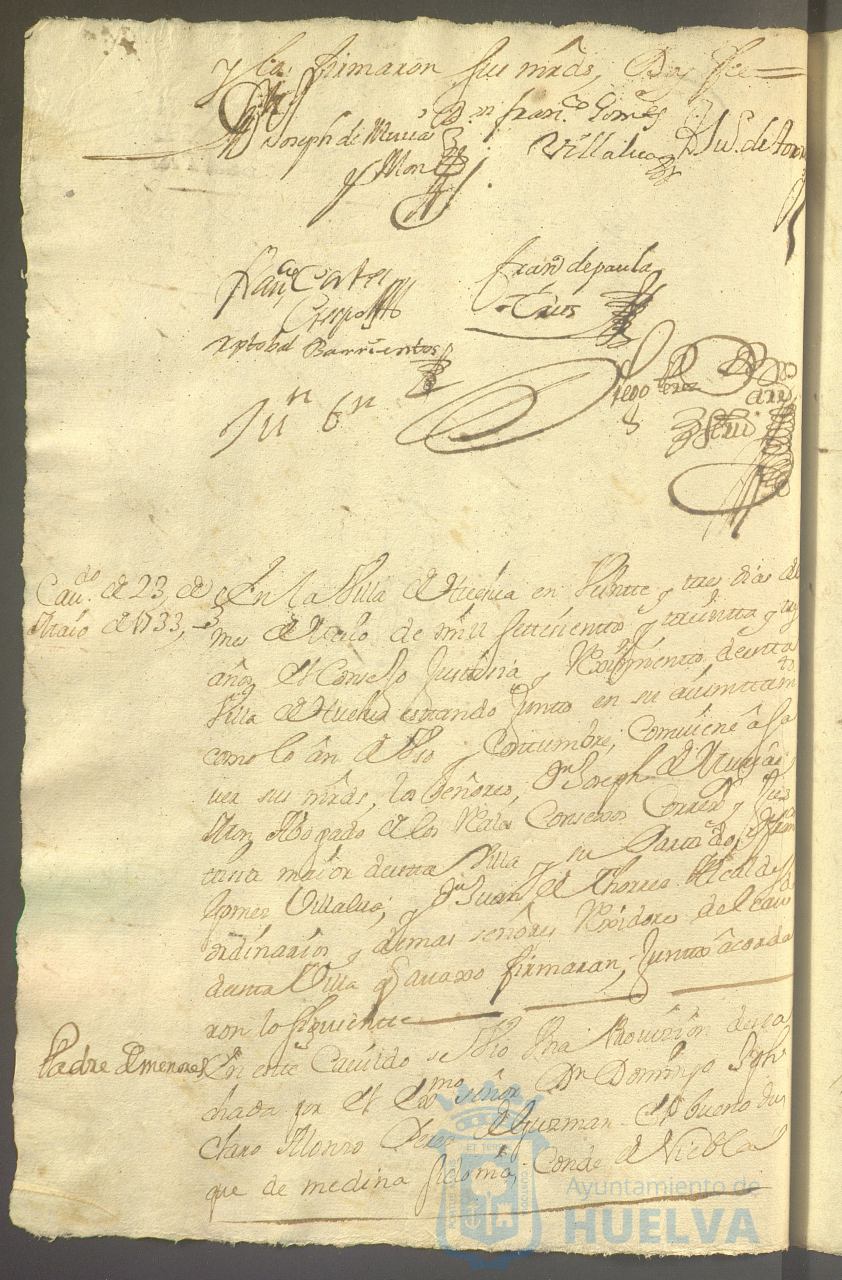 y lo firmaron sus mrds, Doy fee
Dn Joseph de Murcia
y Mon
Dn Franco Gomes
Villalua
D Ju. de
Franco
Crespo
Frano de paula
Trius
Xptobal Barrientos
Diego Perez
Cavdo de 23, de
Maio de 1733,
En la Villa de Huelva en Veintte y tres dias del
mes de Maio de mill settesientos y treintta y tres
años el Consejo Justtisia y Reximiento destta
Villa de Huelva esttando Juntto en su aiunttamto
como lo an de Vso y Costtumbre, Combiene â Sa
ver sus mrds, los señores, Dn Joseph de Murcia
Mon Abogado de los Reales Consexos Correxr y Jus
tisia maior destta Villa y su Parttdo, Dn Fran
Gomes Villalua, y Dn Juan de Thorres Alcaldes
ordinarios y demas señores Rexidores del cavdo
destta Villa q avaxo firmaran, Junttos âcorda
ron lo siguiente
Padre de menores
En este Cavildo se Vio Vna Provision despa
chada por el Exmo señor Dn Domingo Jph
Claro Alonso Peres de Guzman el bueno Du
que de medina sidonia, Conde de Niebla
Ayuntamiento de
HUELVA